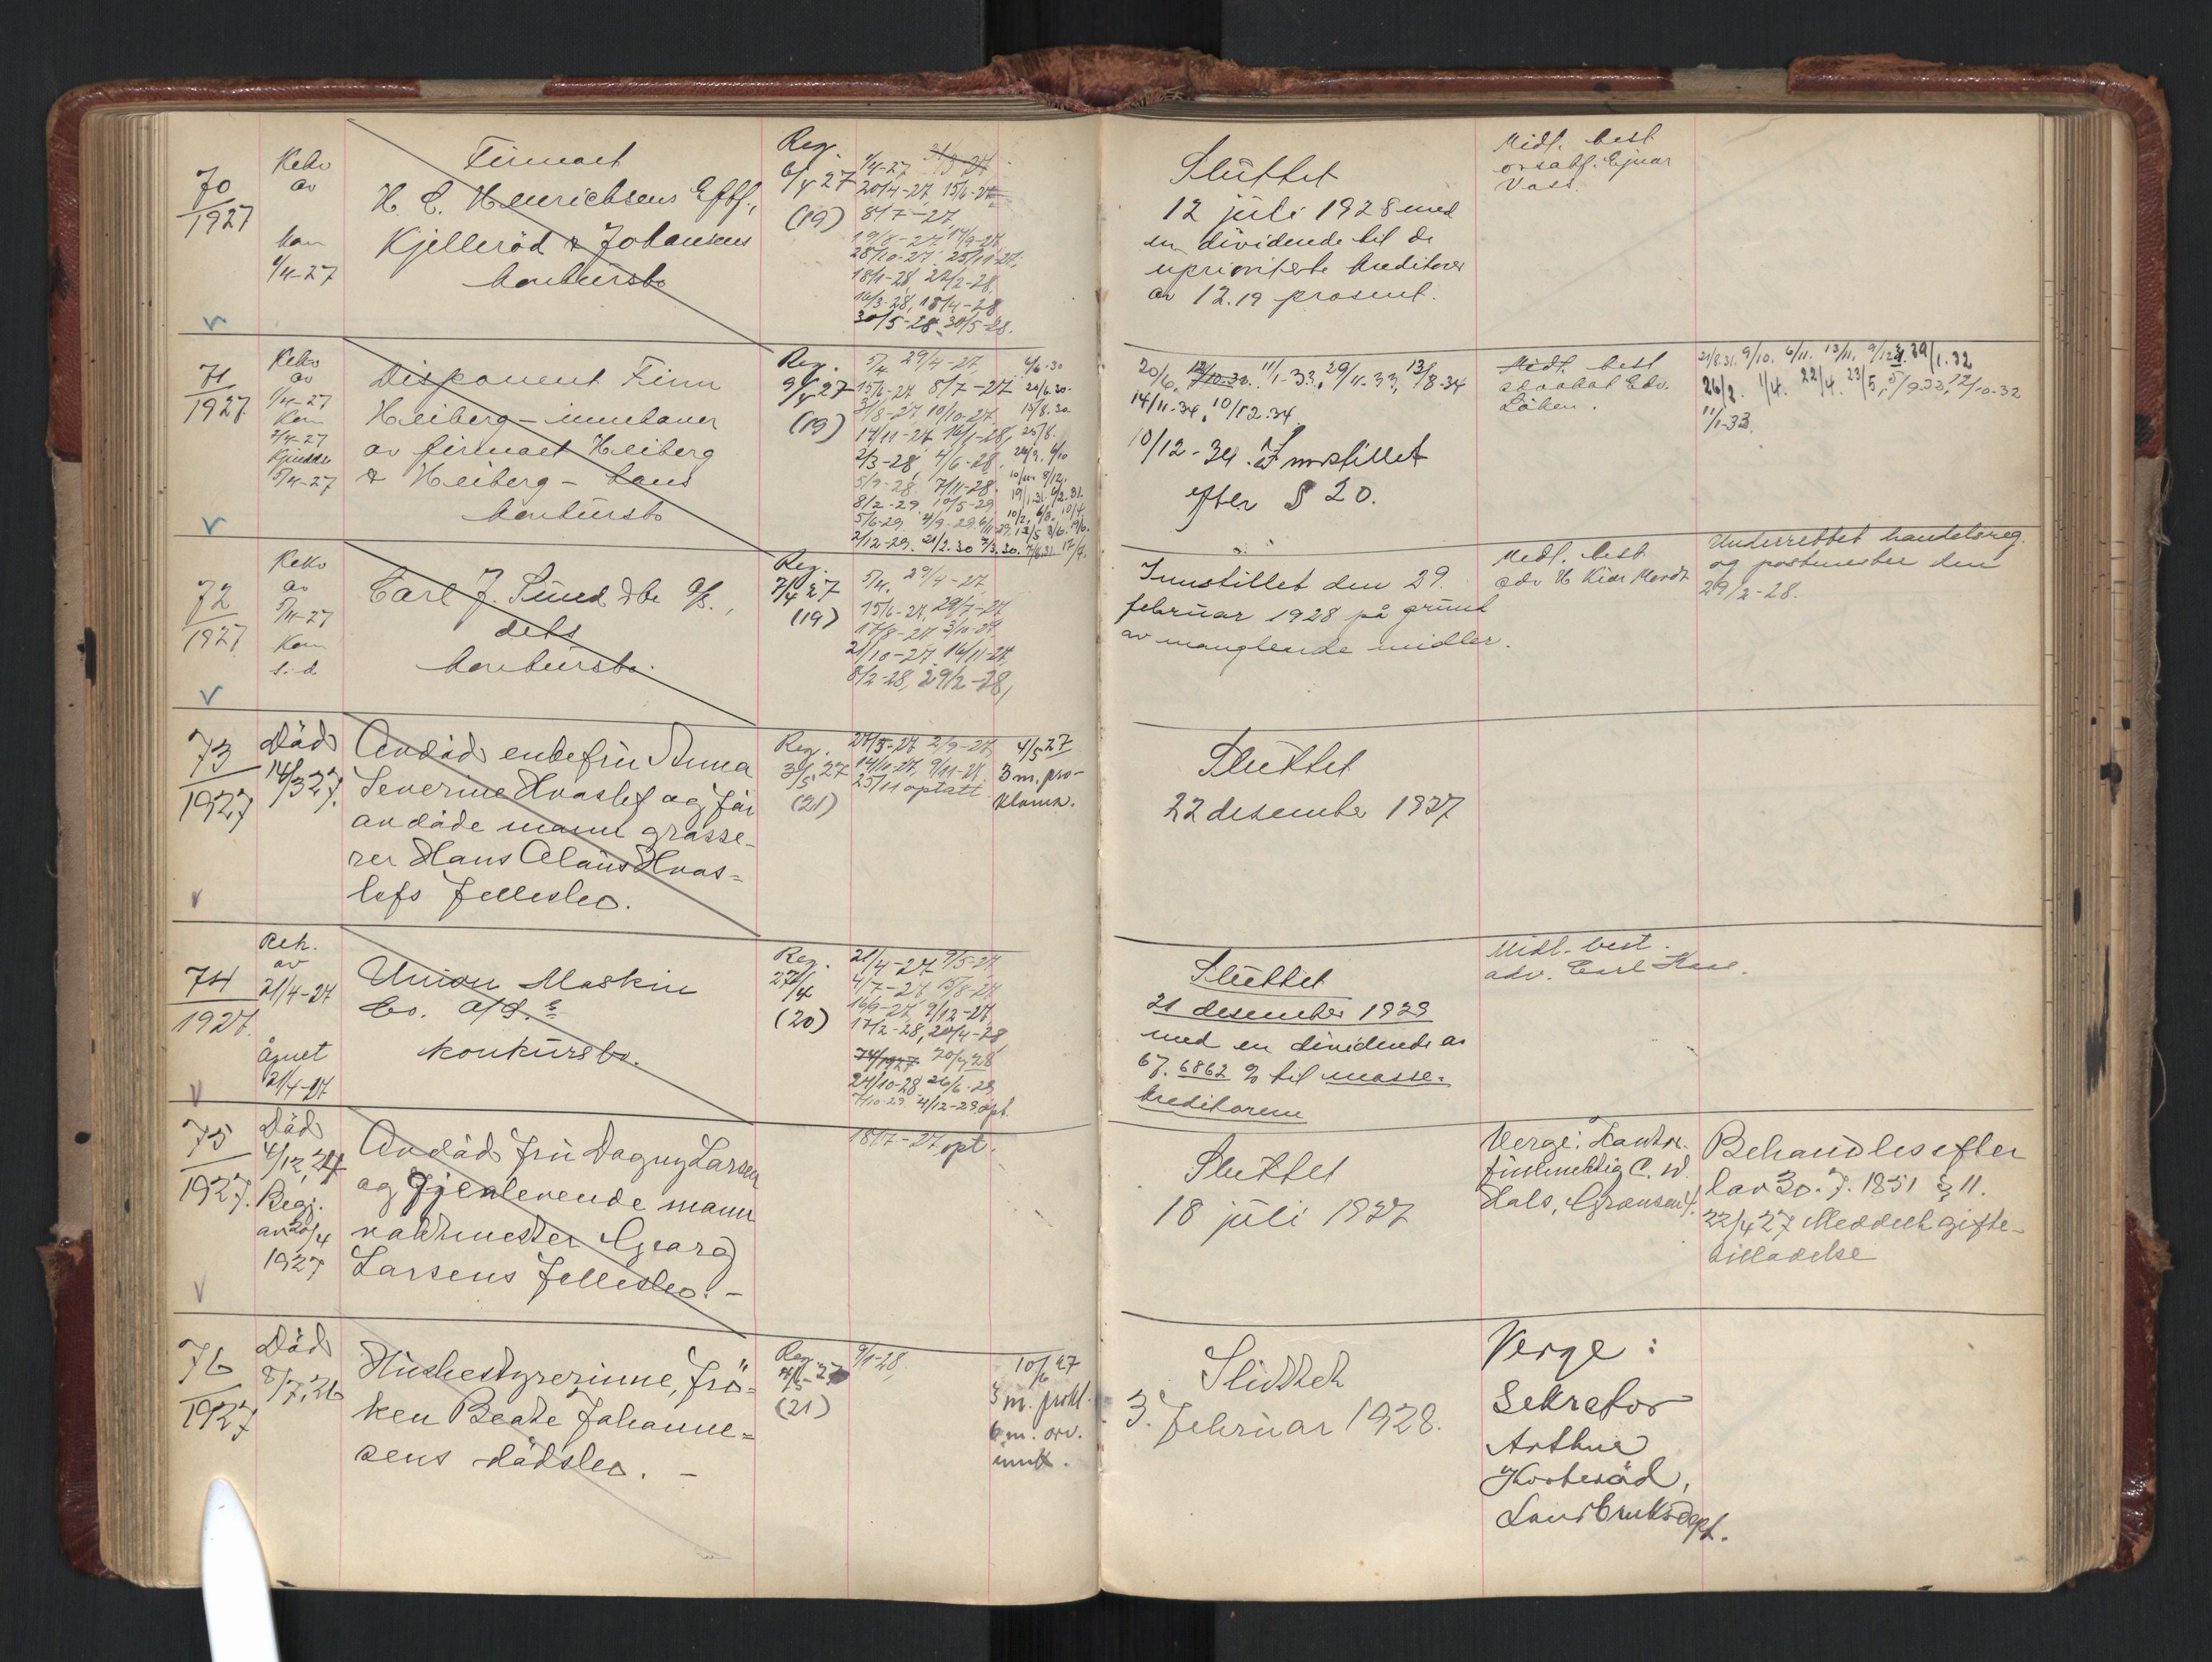 70
1927
av
1/4-27
Firmaet
H. C. Henrichsens Eftf.,
Kjelleröd & Johansens
konkursbo
Reg.
6/4 27
(19)
20/4-27, 15/6-27
8/7-27,
19/8-27
28/10-27, 25/11-27,
18/1-28, 22/2-28,
16/3-28, 18/4-28
30/5-28 30/5-28.
Sluttet
12 juli 1928 med
en dividende til de
upriviterte kreditorer
av 12.19 prosent.
Midl. best
orsakf. Ejnar
Vass.
71
1927
av
1/4-27
Kon
2/4-27
5/4-27
Disponent Finn
Heiberg - innehaver
av firmaet Heiberg
& Heiberg - hans
konkursbo
Reg.
9/4 27
(19)
5/4, 29/4-27,
15/6-27, 8/7-27
3/8-27, 10/10-27,
14/11-27, 16/1-28,
2/3-28, 4/6-28,
5/9-28, 7/11-28.
8/2-29, 10/5-29
6/6-30
20/6, 12/10-30, 11/1-33, 29/11.33, 13/8-34
14/11-34, 10/12.34
10/12-34. Innstillet
efter § 20.
Midt. best
advokat Edv.
Löken.
26/2. 1/4. 22/4. 23/5, 5/9.32, 12/10-32
11/1-33.
72
1927
av
5/4-27
Kon
s.d
Carl J. Sund dbe A/S.,
dets
konkursbo.
Reg.
7/4 27
(19)
5/4, 29/4-27,
15/6-27, 29/7-27,
17/8-27, 3/10-27
21/10-27, 16/11-27,
8/2-28, 29/2-28,
Innstillet den 29.
februar 1928 på grunt
av manglende midler.
Midl. best
adv H Kiær Mordt
Underrettet handelsreg.
og postmester den
29/2-28.
73
1927
Död
14/3 27.
Avdöd enkefru Anna
Severine Hvaslef og för
avdöde mann grosse-
rer Hans Claus Hvas-
lefs fellesbo.
Reg.
3/5 27
(21)
27/5-27 2/9-27,
14/10-27, 9/11-27.
25/11 optatt
4/5 27
3 m. pro-
klama.
Sluttet
22 desember 1927
74
1927.
Rek.
av
21/4-27
Åpnet
21/4-27
Union Maskin
Co. A/S.s
konkursbo.
Reg.
27/4
(20)
21/4-27, 9/5-27
4/7-27, 15/8-27
16/9-27, 9/12-27
17/2-28, 20/4-28,
74/1927 20/7 28,
24/10-28 26/6-29,
7/10-29. 4/12-29 opt.
Sluttet
21 desember 1929
med en dividende av
67.6862 % til masse-
kreditorene
Midl. best.
adv. Carl
75
1927.
Död
4/12, 24
Begj.
av 20/4
1927
Avdöd fru Dagny Larsen
og gjenlevende mann
vaktmester Georg
Larsens fellesbo. -
18/7-27 opt.
Sluttet
18 juli 1927
Verge: Kontor.
fullmektig C. W.
Hals, Grønsen 4.
Behandles efter
lov 30.7.1851 § 11.
22/4 27 Meddelt gifte-
tilladelse
76
1927
Död
8/7, 26
Husbestyrerinne, frö-
ken Beate Johanne-
sens dödsbo. -
Reg.
(21)
9/1-28,
10/6 27
3 m. prokl.
6 m. arv.
innk.
Sluttet
3. februar 1928.
Verge:
Sekretær
Arthur
Korteröd,
Landbruksdept.